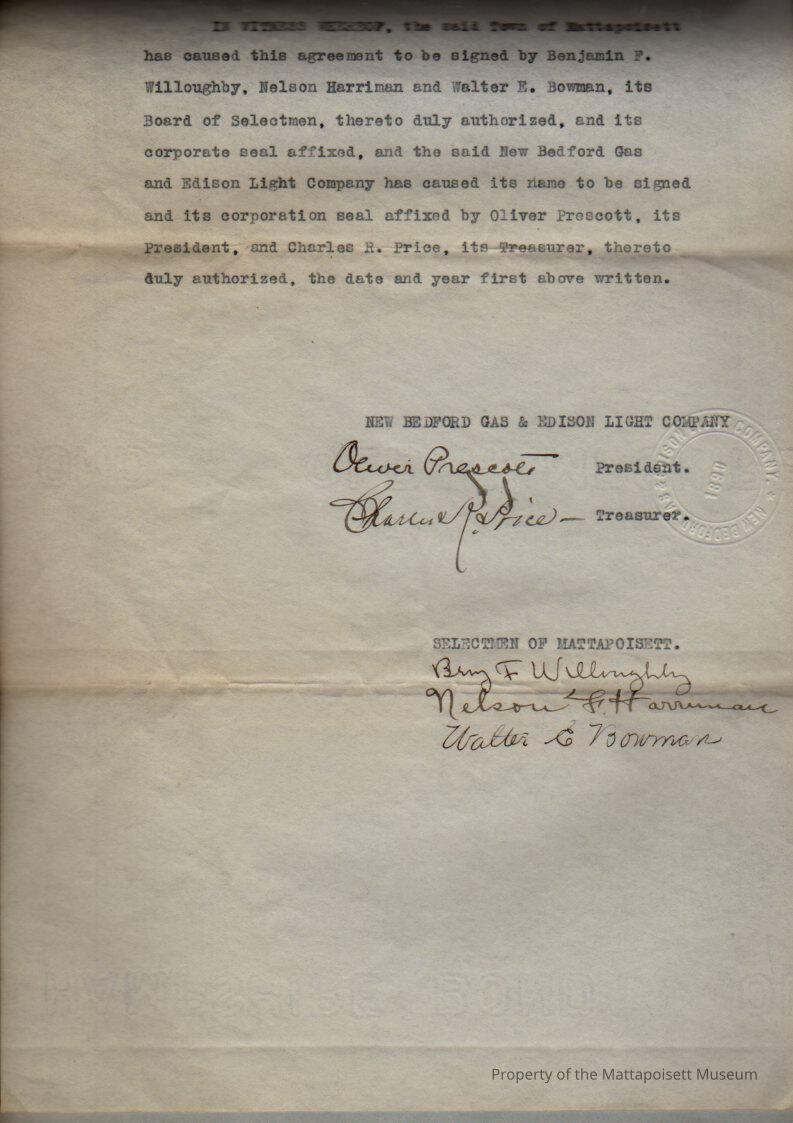 IN WITNESS WHEREOF, the said Town of Mattapoisett
has caused this agreement to be signed by Benjamin F.
Willoughby, Nelson Harriman and Walter E. Bowman, its
Board of Selectmen, thereto duly authorized, and its
corporate seal affixed, and the said New Bedford Gas
and Edison Light Company has caused its name to be signed
and its corporation seal affixed by Oliver Prescott, its
President, and Charles R. Price, its Treasurer, thereto
duly authorized, the date and year first above written.
NEW BEDFORD GAS & EDISON LIGHT COMPANY
Oliver Prescott President.
Charles R. Price — Treasurer.
1890
COMPANY. * NEW BEDFORD GAS & EDISON
SELECTMEN OF MATTAPOISETT.
Benj F Willoughby
Nelson F. Harriman
Walter E Bowman
BOND
Property of the Mattapoisett Museum